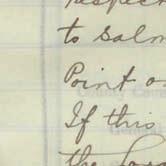 respect
to Salm
Point o
If this
the